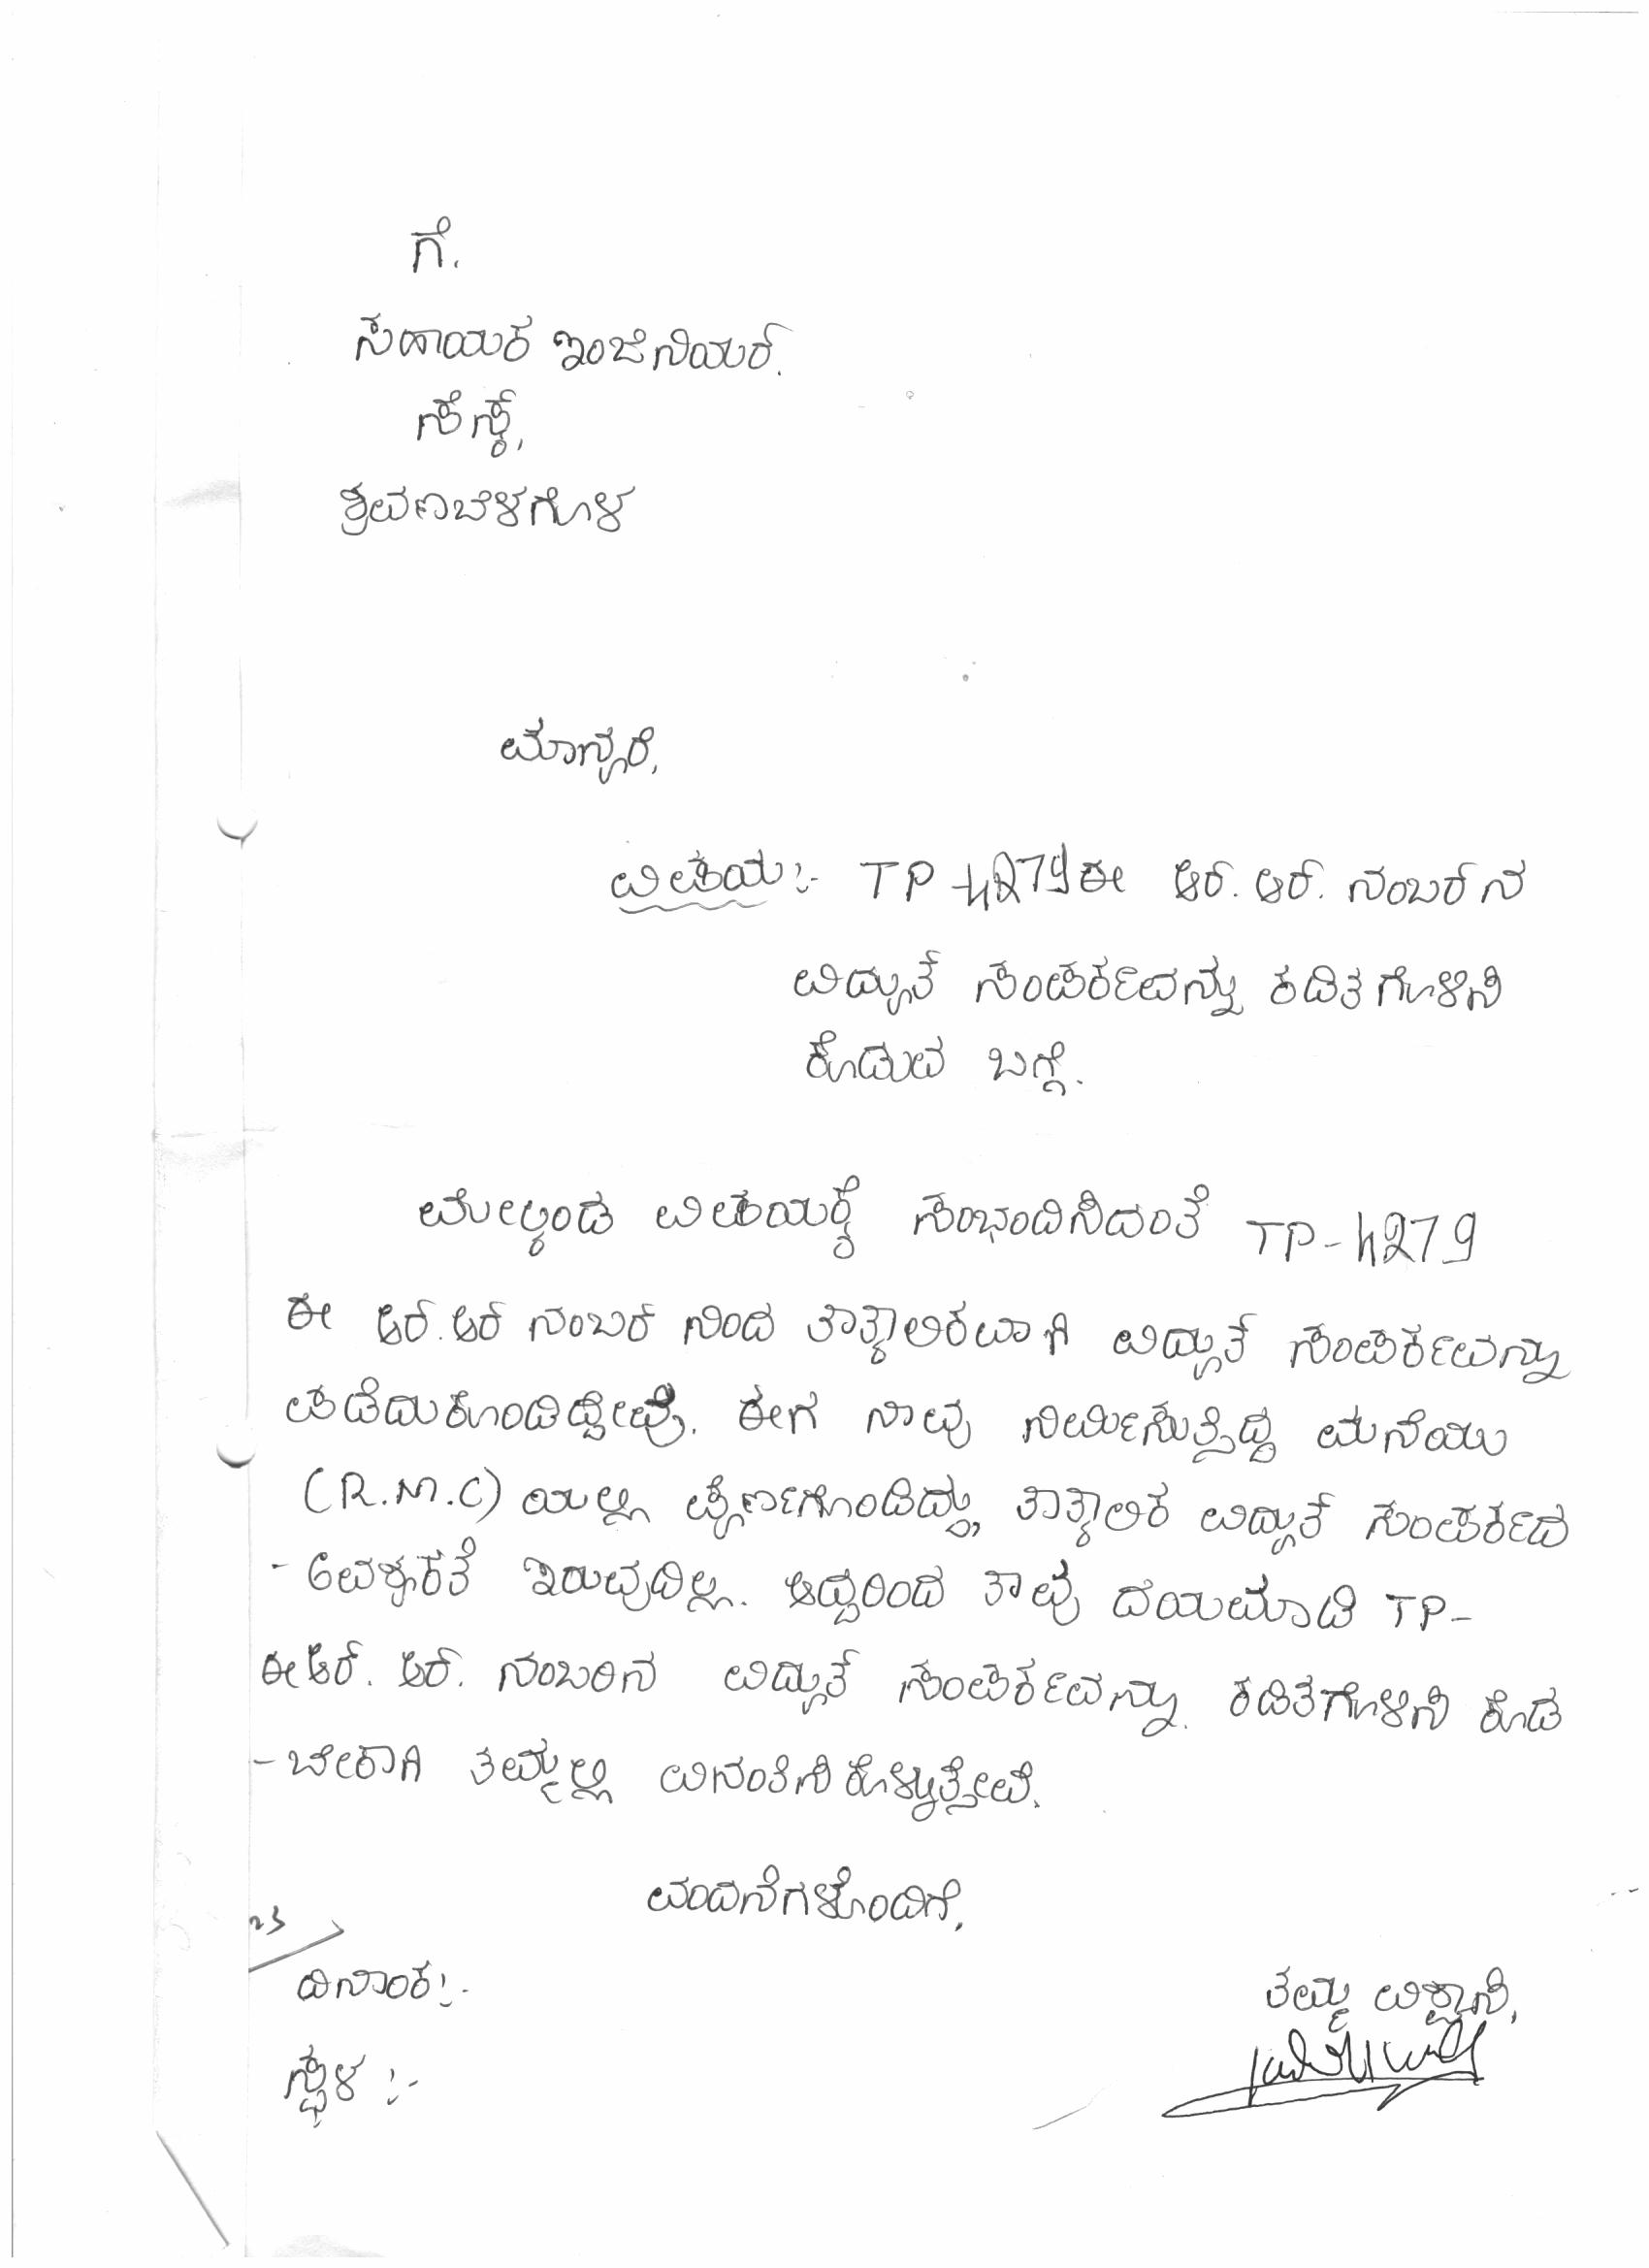 ಗೆ.
ಸಹಾಯಕ ಇಂಜೆನಿಯರ್.
ಸೆಸ್ಕ್,
ಶ್ರವಣಬೆಳಗೊಳ
ಮಾನ್ಯರೆ,
ವಿಷಯ:- TP 4279 ಈ ಆರ್. ಆರ್. ನಂಬರ್ ನ
ವಿದ್ಯುತ್ ಸಂಪರ್ಕವನ್ನು ಕಡಿತಗೊಳಿಸಿ
ಕೊಡುವ ಬಗ್ಗೆ.
ಮೇಲ್ಕಂಡ ವಿಷಯಕ್ಕೆ ಸಂಭಂದಿಸಿದಂತೆ TP-4279
ಈ ಆರ್.ಆರ್ ನಂಬರ್ ನಿಂದ ತಾತ್ಕಾಲಿಕವಾಗಿ ವಿದ್ಯುತ್ ಸಂಪರ್ಕವನ್ನು
ಪಡೆದುಕೊಂಡಿದ್ದೇವೆ. ಈಗ ನಾವು ನಿರ್ಮಿಸುತ್ತಿದ್ದ ಮನೆಯು
(R.M.C) ಯಲ್ಲಿ ಪೂರ್ಣಗೊಂಡಿದ್ದು, ತಾತ್ಕಾಲಿಕ ವಿದ್ಯುತ್ ಸಂಪರ್ಕದ
- ಅವಶ್ಯಕತೆ ಇರುವುದಿಲ್ಲ. ಆದ್ದರಿಂದ ತಾವು ದಯಮಾಡಿ TP-
ಈ ಆರ್. ಆರ್. ನಂಬರಿನ ವಿದ್ಯುತ್ ಸಂಪರ್ಕವನ್ನು ಕಡಿತಗೊಳಿಸಿ ಕೊಡ
- ಬೇಕಾಗಿ ತಮ್ಮಲ್ಲಿ ವಿನಂತಿಸಿಕೊಳ್ಳುತ್ತೇವೆ.
ವಂದನೆಗಳೊಂದಿಗೆ,
23
ದಿನಾಂಕ:-
ತಮ್ಮ ವಿಶ್ವಾಸಿ,
ಸ್ಥಳ :-